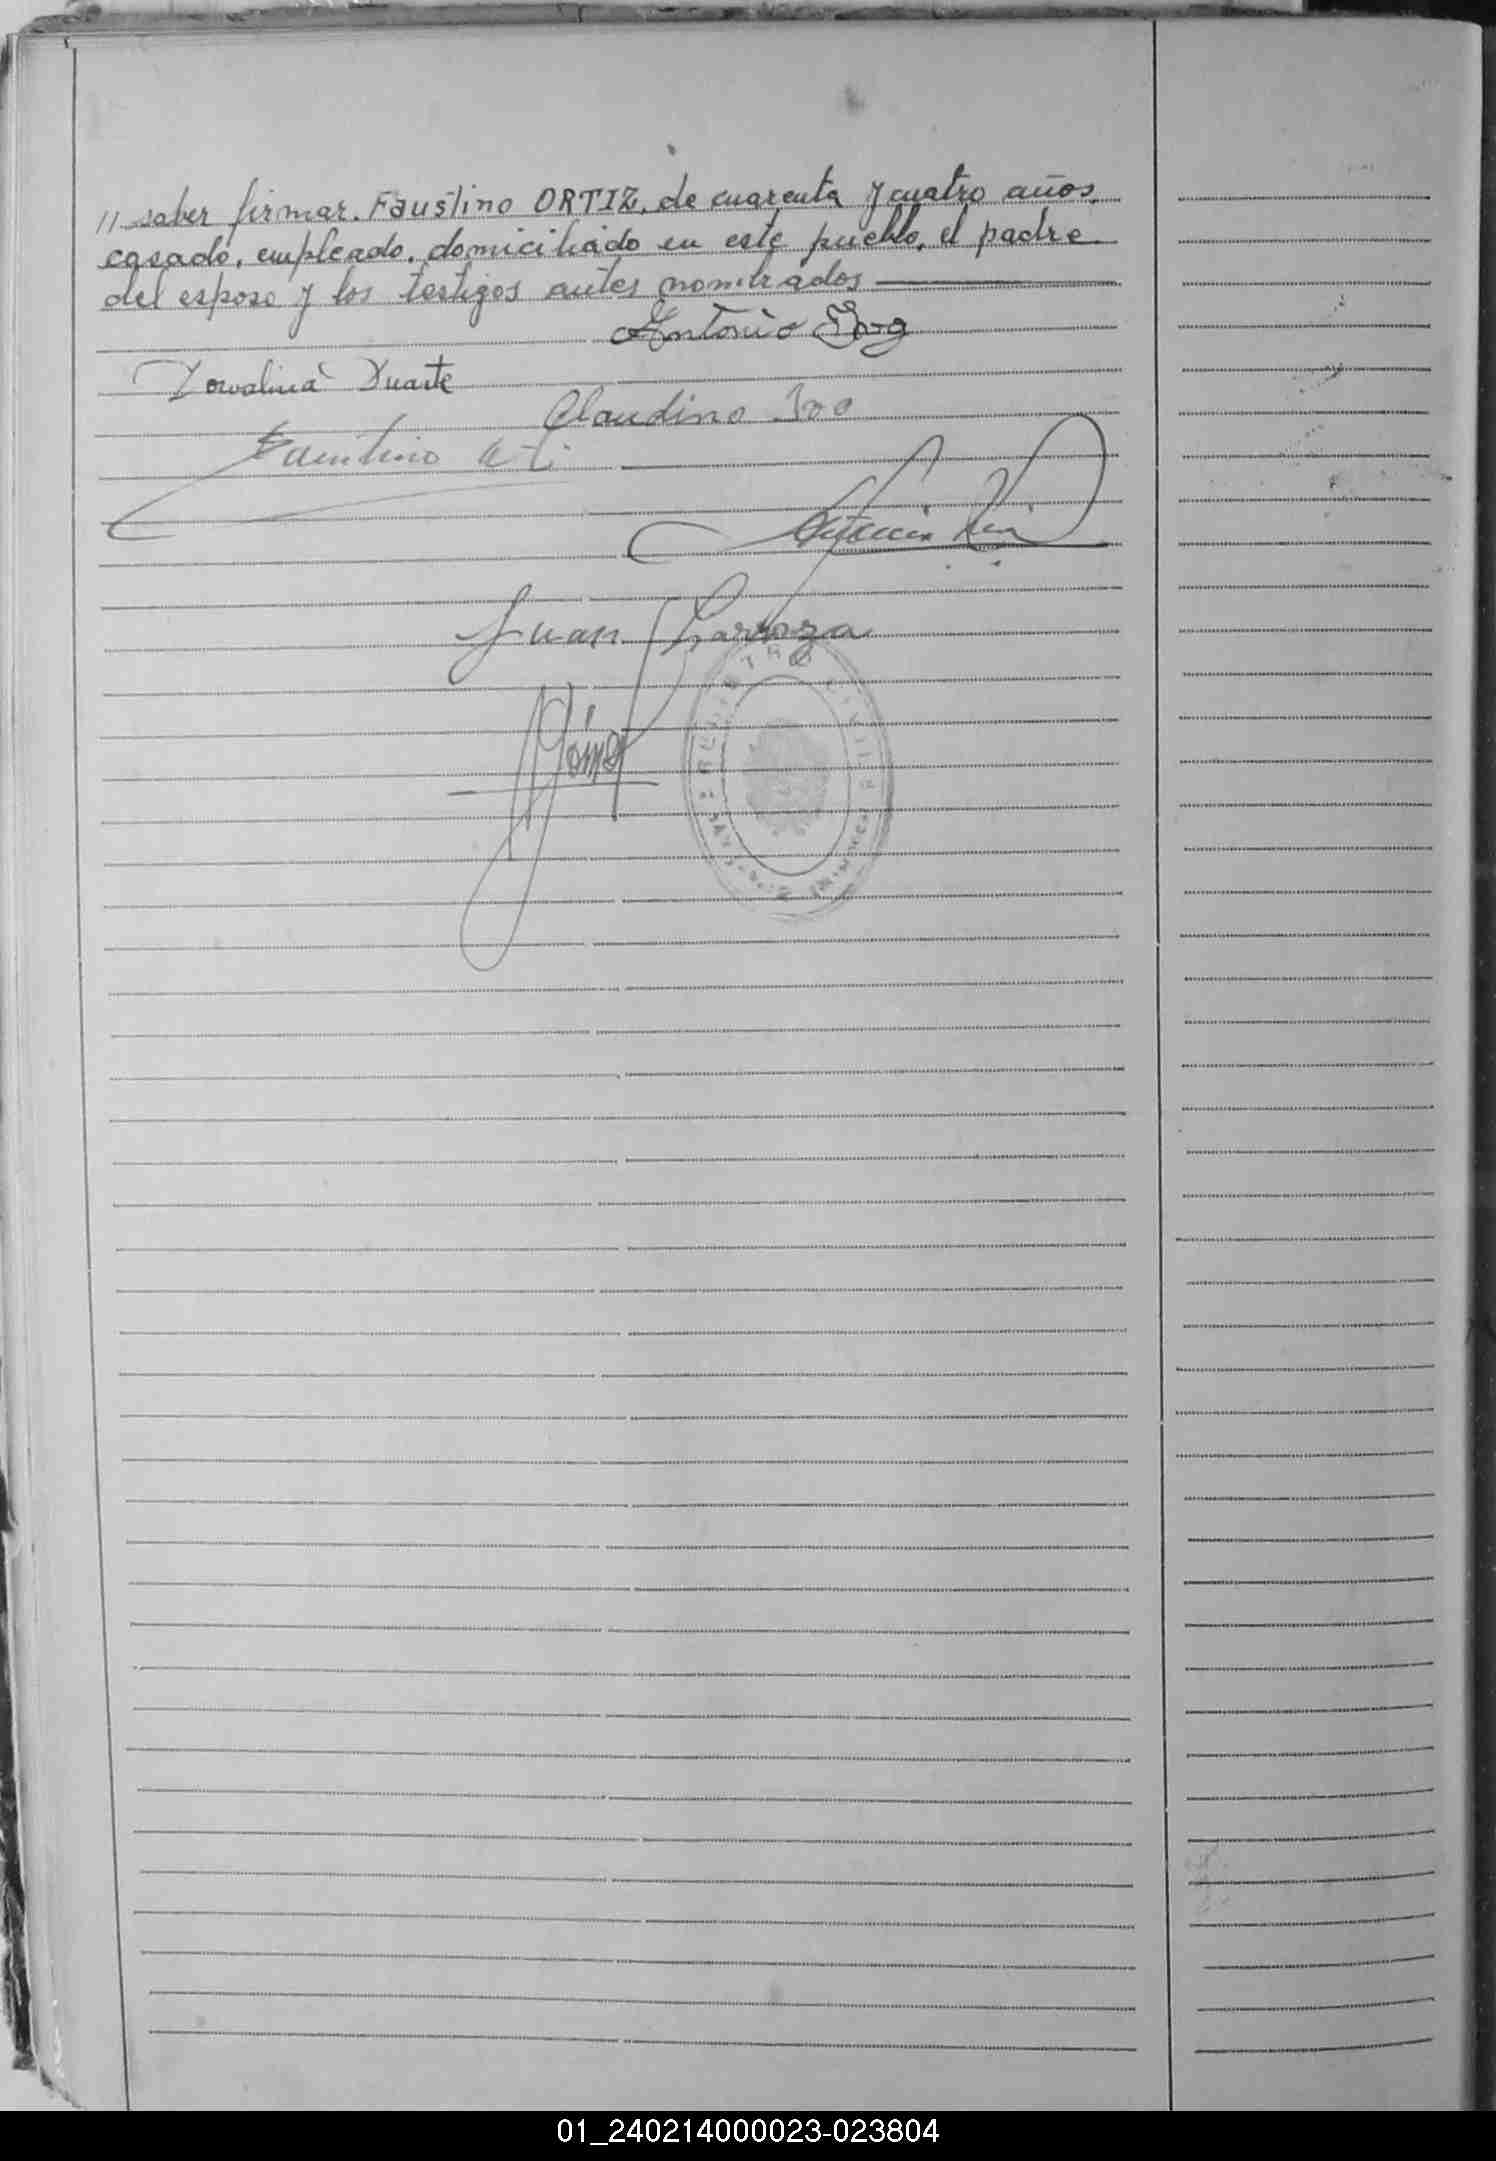 // saber firmar. Faustino ORTIZ, de cuarenta y cuatro años,
casado, empleado, domiciliado en este pueblo, el padre
del esposo y los testigos antes nombrados
Antonio
Duarte
Claudino
Faustino
Antonio
Juan Carroza
Gómez
01_240214000023-023804